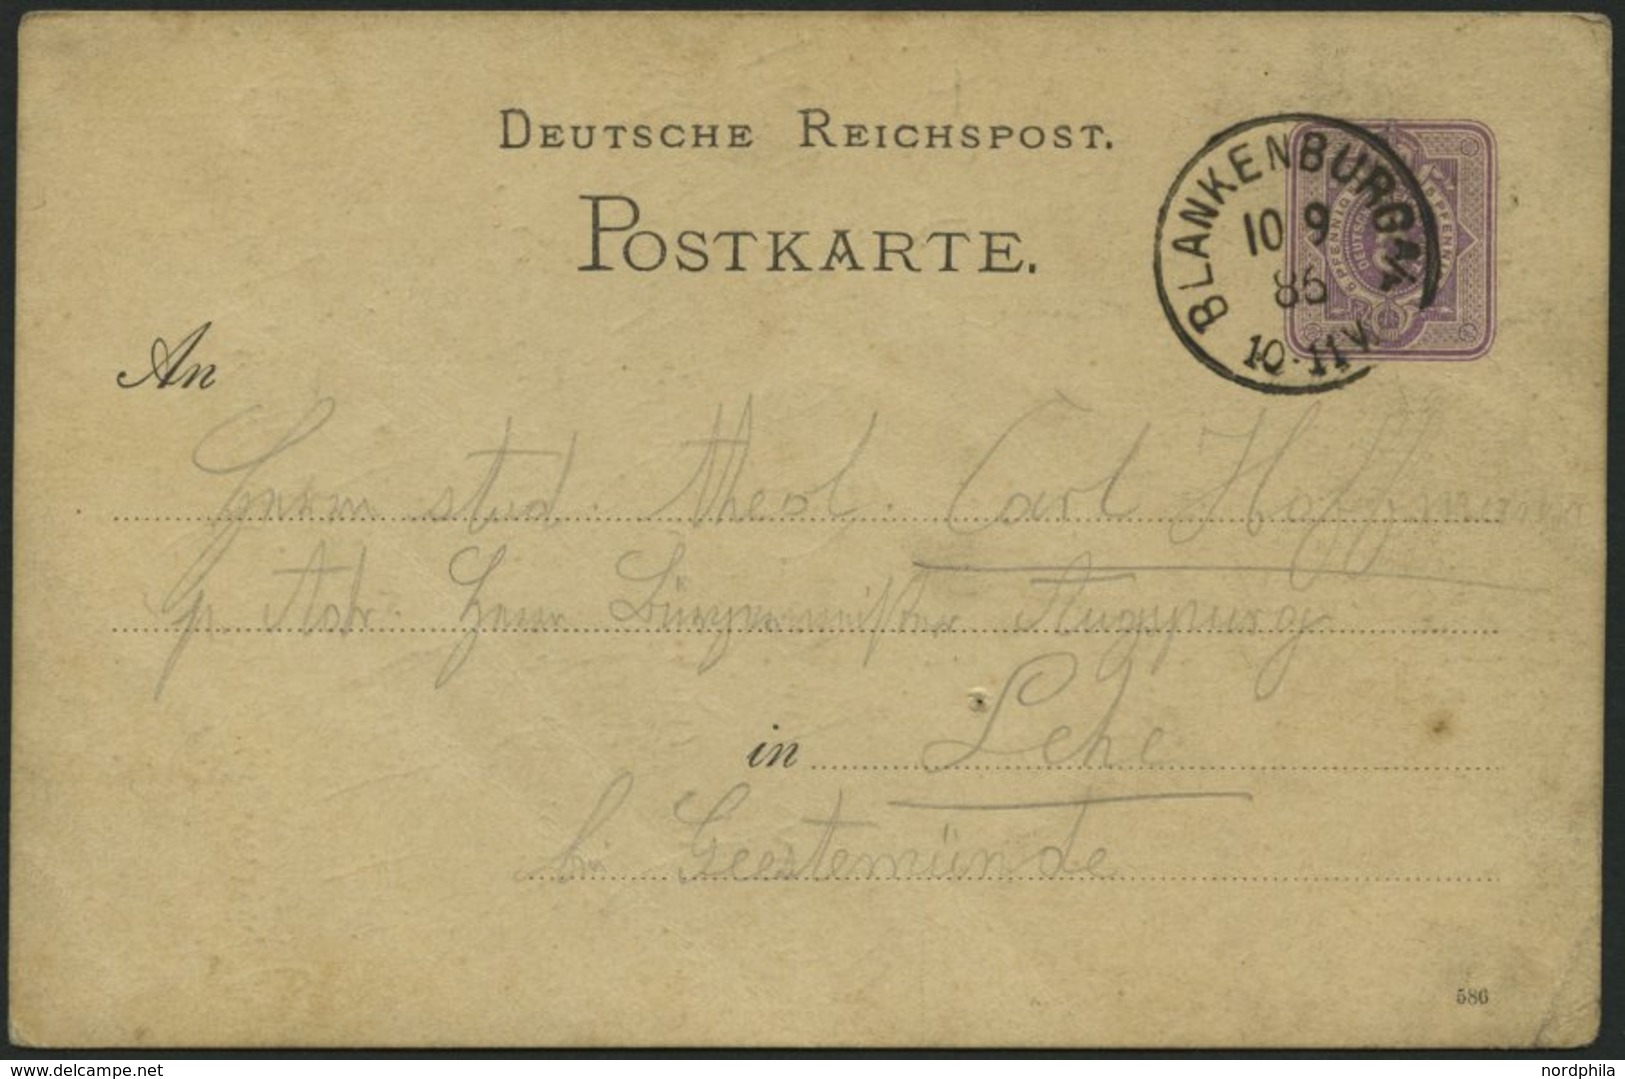 DEUTSCHE REICHSPOST.
POSTKARTE.
BLANKENBURG
10 9
86
10-11 V.
5 PFENNIG
An
Herrn stud. theol. Carl Hoffmann
p. Adr. Herrn Bürgermeister Augspurg
in Lehe
bei Geestemünde
586
www.delcampe.net
nordphila